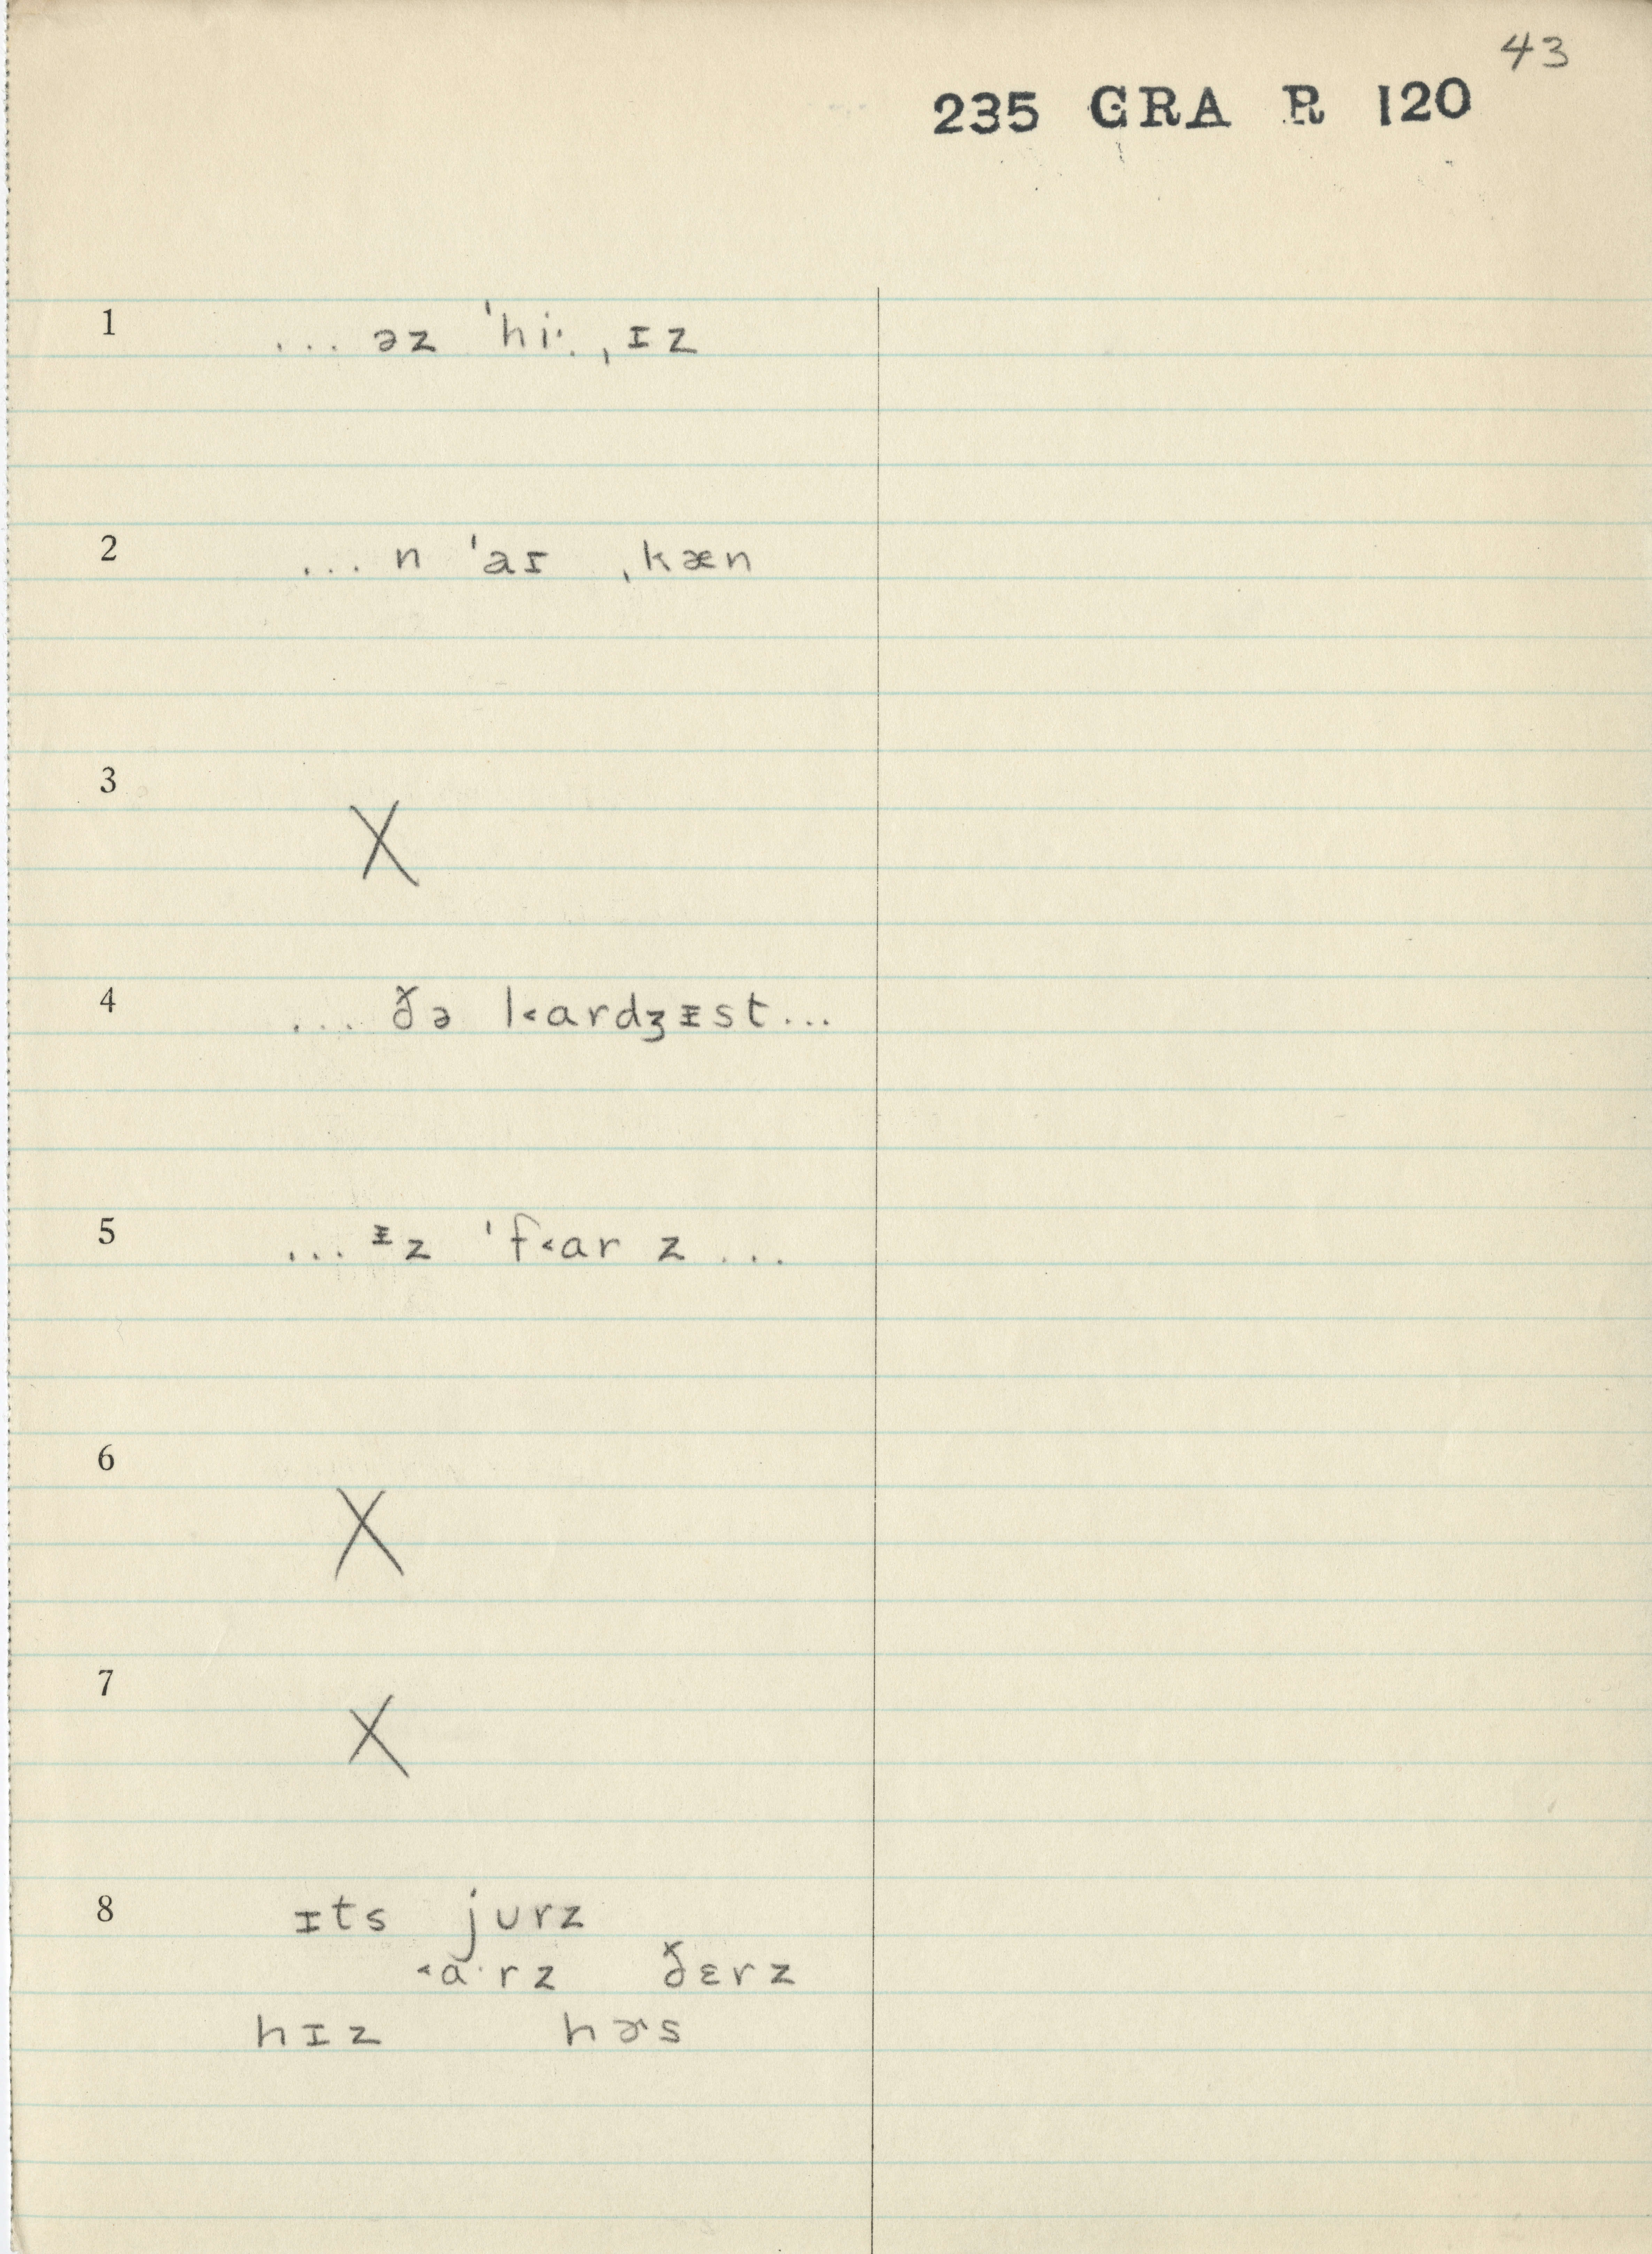 43
235 GRA R 120
1 ... əz ˈhi·. ˌɪz
2 ... n ˈaɪ ˌkæn
3 X
4 ... ðə l˂ardʒᵻst...
5 ... ᵻz ˈf˂ar z ...
6 X
7 X
8 ɪts jurz
˂a·rz ðɛrz
hɪz hɚs